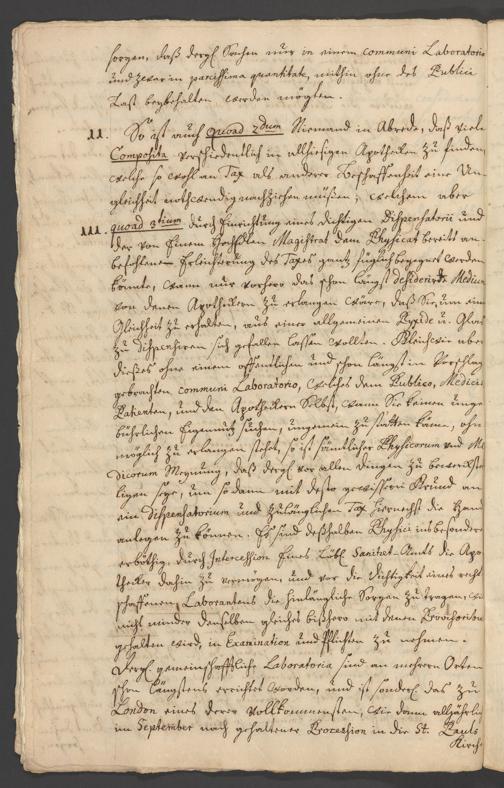 sorgen, daß dergl. Sachen nur in einem communi Laboratorio
und zwar in parcissima quantitate, mithin ohne des Publici
Last beybehalten werden mögten.
II. So ist auch quoad 2dum Niemand in Abrede, daß viele
Composita verschiedentlich in allhiesigen Apotheken zu finden,
welche so wohl an Tax als anderer Beschaffenheit eine Un-
gleichheit nothwendig nachziehen müßen; welchem aber
III. quoad 3tium durch Einrichtung eines dichtigen Dispensatorii und
der von Einem Hochedlen Magistrat dem Physicat bereits an-
befohlenen Erleichterung des Taxes gantz füglich begegnet werden
könnte, wann nur vorhero das schon längst desiderirte Medium
von denen Apothekern zu erlangen wäre, daß Sie, um eine
Gleichheit zu erhalten, aus einer allgemeinen
zu dispensiren sich gefallen lassen wollten. Gleichwie aber
dießes ohne einem öffentlichen und schon längst in Vorschlag
gebrachten communi Laboratorio, welches dem Publico, Medicis
Patienten, und den Apothekern Selbst, wann Sie keinen unge-
bührlichen Eigennutz suchen, ungemein zu statten käme, ohn-
möglich zu erlangen stehet, so ist sämtlicher Physicorum und Me-
dicorum Meynung, daß dergl. vor allen Dingen zu bewerckstel-
ligen seye, um so dann mit desto gewisserm Grund an
ein Dispensatorium und zulänglichen Tax hiernechst die Hand
anlegen zu können. Es sind deßhalben Physici insbesondere
erböthig, durch Intercession Eines Löbl. Sanitet-Amts die Apo-
theker dahin zu vermögen, und vor die Dichtigkeit eines recht-
schaffenen Laborantens die hinlängliche Sorgen zu tragen, wie
nicht minder denselben gleich bißhero mit denen Provisoribus
gehalten wird, in Examination und Pflichten zu nehmen.
Dergl. gemeinschafftliche Laboratoria sind an mehrern Orten
schon längstens errichtet worden, und ist sonderl. das zu
London eines derer Vollkommensten, wie dann alljährlich
im September nach gehaltener Procession in die St. Pauls
Kirch